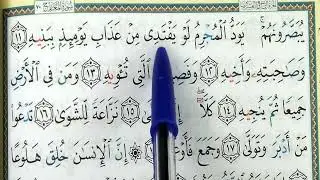 يُبَصَّرُونَهُمْ ۚ يَوَدُّ الْمُجْرِمُ لَوْ يَفْتَدِى مِنْ عَذَابِ يَوْمِئِذٍ بِبَنِيهِ ١١
وَصَاحِبَتِهِ وَأَخِيهِ ١٢ الَّتِى تُـْٔوِيهِ ١٣ وَمَن فِى الْأَرْضِ
جَمِيعًا ثُمَّ يُنجِيهِ ١٤ كَلَّا ١٥ نَزَّاعَةً لِّلشَّوَىٰ ١٦ تَدْعُوا۟
مَنْ أَدْبَرَ وَتَوَلَّىٰ ١٧ وَجَمَعَ إِنَّ الْإِنسَٰنَ خُلِقَ هَلُوعًا